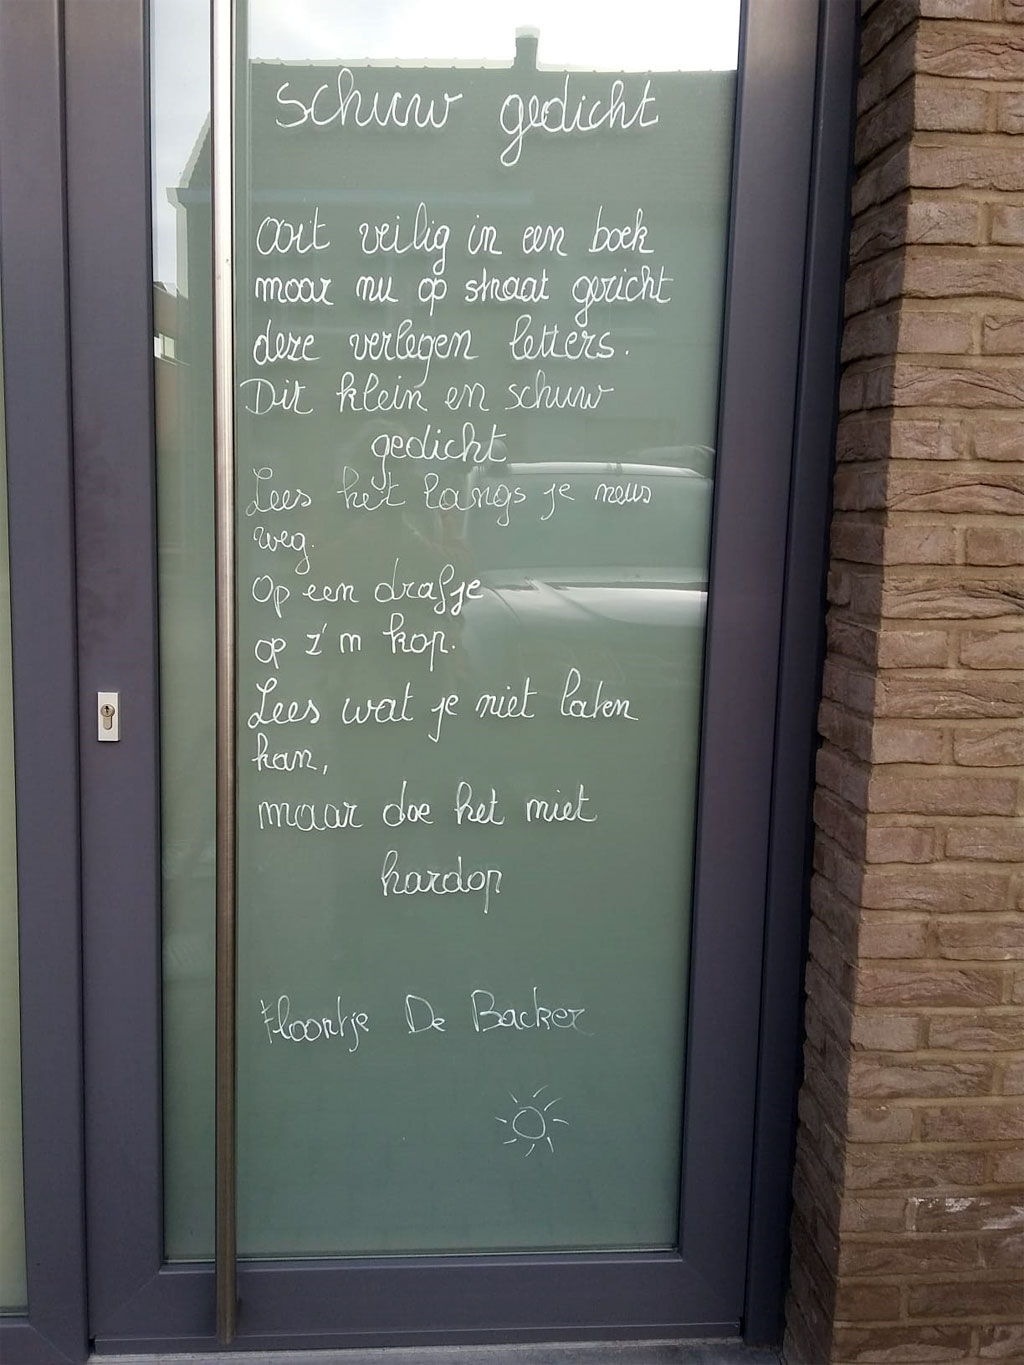 Schuw gedicht
Ooit veilig in een boek
maar nu op straat gericht
deze verlegen letters.
Dit klein en schuw
gedicht
Lees het langs je neus
weg.
Op een drafje
op z'm kop.
Lees wat je niet laten
kan,
maar doe het niet
hardop
Floortje De Backer